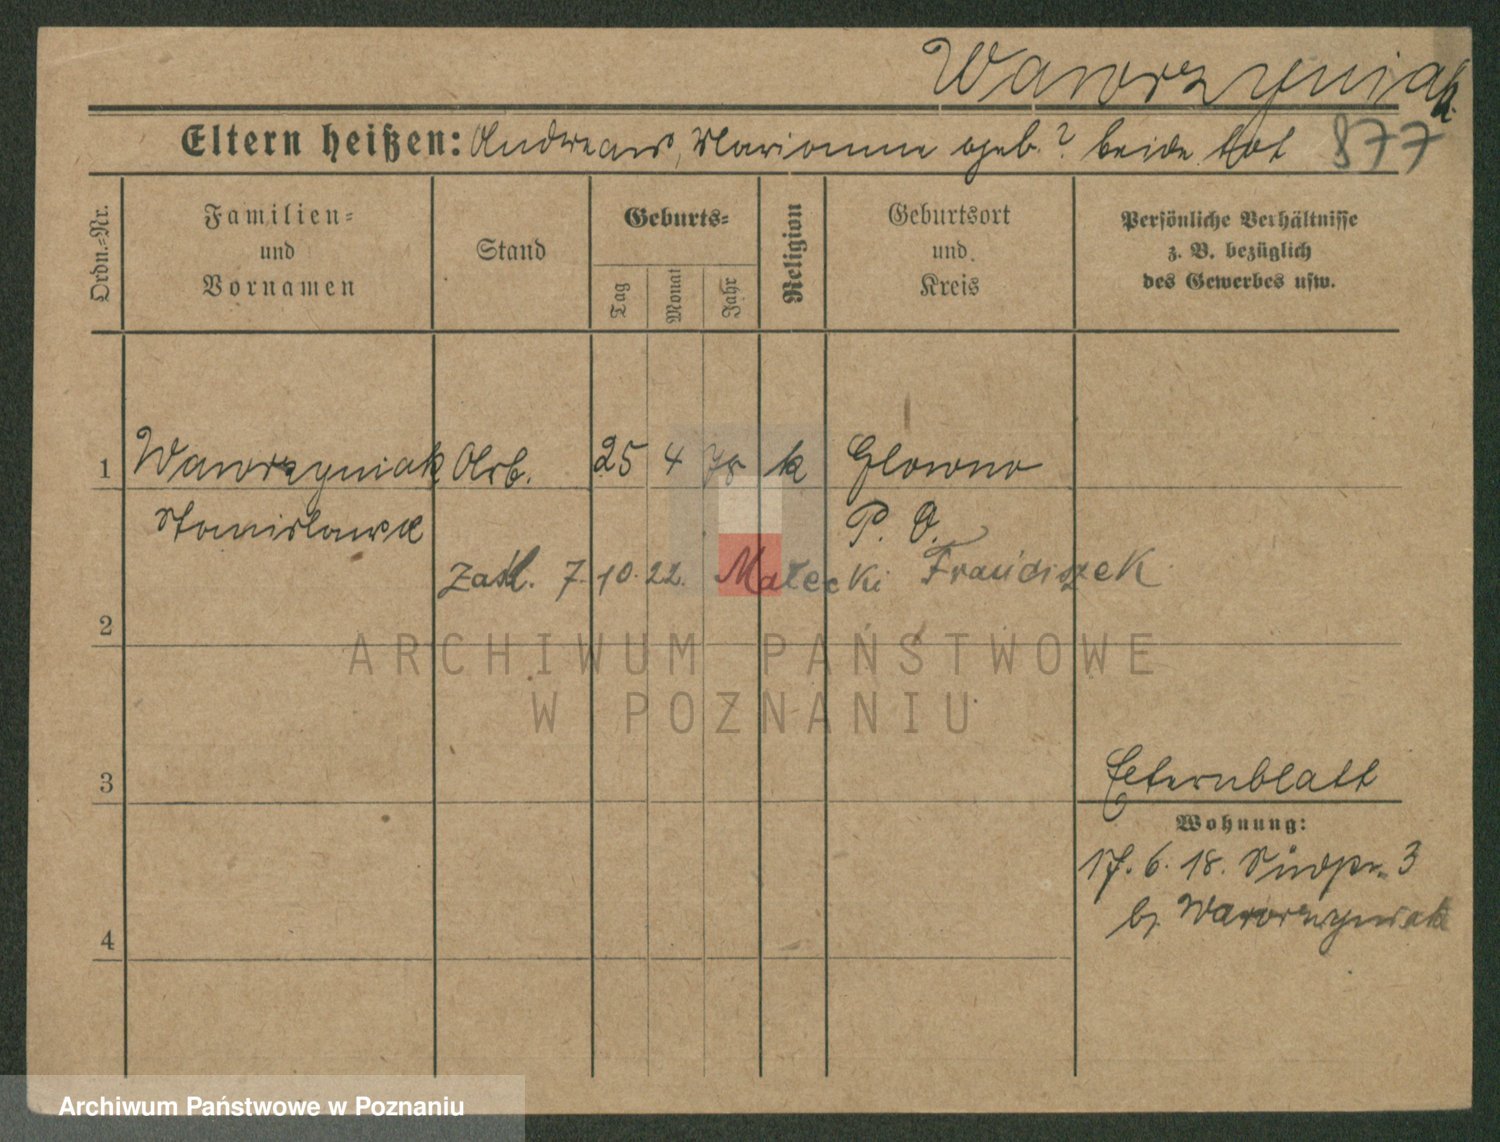 Wawrzyniak.
Eltern heißen: Andreas, Marianne geb. ? beide tot 877
Ordn.-Nr.
Familien- und Vornamen
Stand
Geburts-
Tag Monat Jahr
Religion
Geburtsort und Kreis
Persönliche Verhältnisse z. B. bezüglich des Gewerbes usw.
1 Wawrzyniak Arb. 25 4 78 k Glowno
Stanislawa P. O.
zaśl. 7.10.22. Małecki Franciszek
2
ARCHIWUM PAŃSTWOWE
W POZNANIU
3 Elternblatt
Wohnung:
17. 6. 18. Südstr. 3
b. Wawrzyniak
4
Archiwum Państwowe w Poznaniu